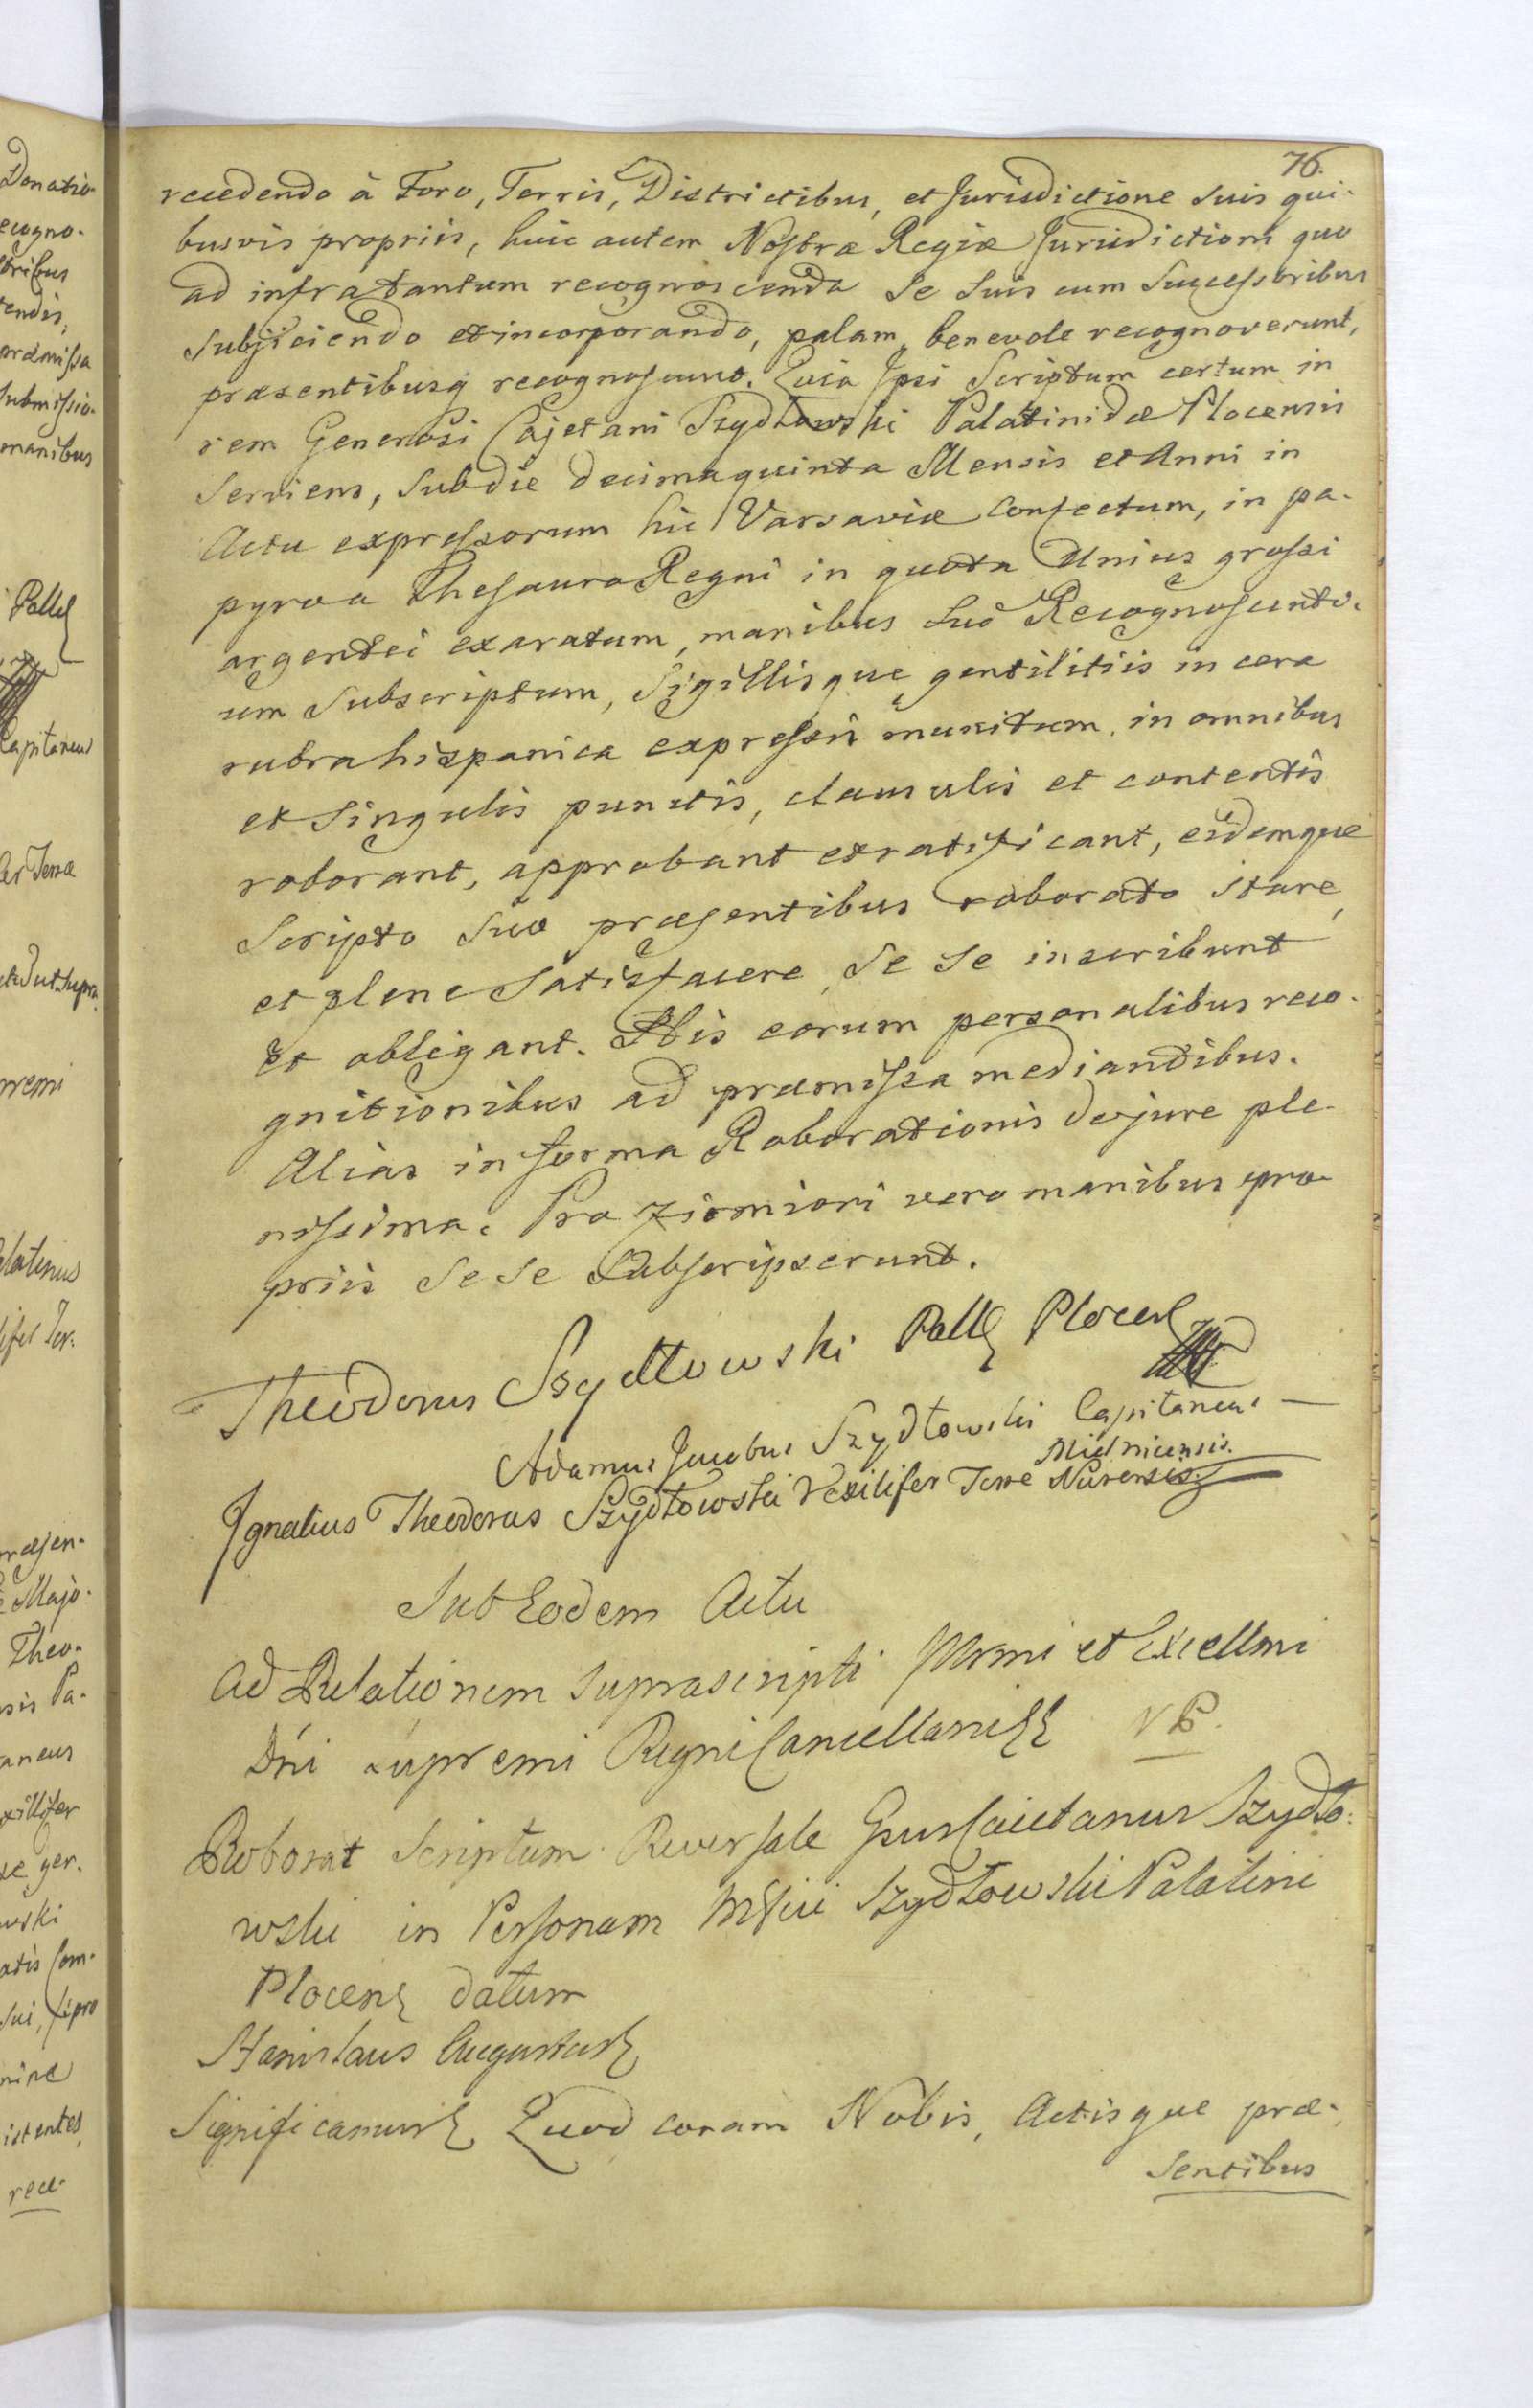 76.
recedendo à Foro, Terris, Districtibus, et Jurisdictione suis qui-
busvis propriis, huic autem Nostræ Regiæ Jurisdictioni quo
ad infra tantum recognoscenda se suis cum Successoribus
subjiciendo et incorporando, palam, benevole recognoverunt,
præsentibusq recognoscunt. Quia Ipsi Scriptum certum in
rem Generosi Cajetani Szydłowski Palatinidæ Plocensis
serviens, sub die decimaquinta Mensis et Anni in
Actu expressorum hic Varsaviæ confectum, in pa-
pyroa Thesauro Regni in quota Unius grossi
argentei exaratum, manibus suis Recognoscenti-
um subscriptum, Sigillisque gentilitiis in cera
rubra hispanica expressis munitum, in omnibus
et singulis punctis, clausulis et contentis
roborant, approbant et ratificant, eidemque
Scripto suo præsentibus roborato stare,
et plene satisfacere, se se inscribunt
et obligant. His eorum personalibus reco-
gnitionibus ad præmissa mediantibus.
Alias in forma Roborationis de jure ple-
nissima. Pro firmiori vero manibus pro-
priis sese subscripserunt.
Theodorus Szydłowski Pall Plocen
Adamus Jacobus Szydłowski Capitaneus
Mielnicensis.
Ignatius Theodorus Szydłowski Vexilifer Terre Nurensis
Sub Eodem Actu
Ad Relationem suprascripti Illrmi et Excellmi
Dni supremi Regni Cancellarii
Roborat Scriptum Reversale Gsus Caietanus Szydło-
wski in Personam Mfici Szydłowski Palatini
Plocens datum
Stanislaus Augustus
Significamus Quod coram Nobis, Actisque præ-
sentibus
Donatio-
ecogno-
tribus
tendis,
præmissa
submissio-
manibus
Pall
Capitaneus
Terræ
ut supra
premi
alatinus
Ter.
præsen-
Majo-
Theo-
sis Pa-
aneus
xillifer
ger-
wski
atis Com-
sui,
istentes,
rece-